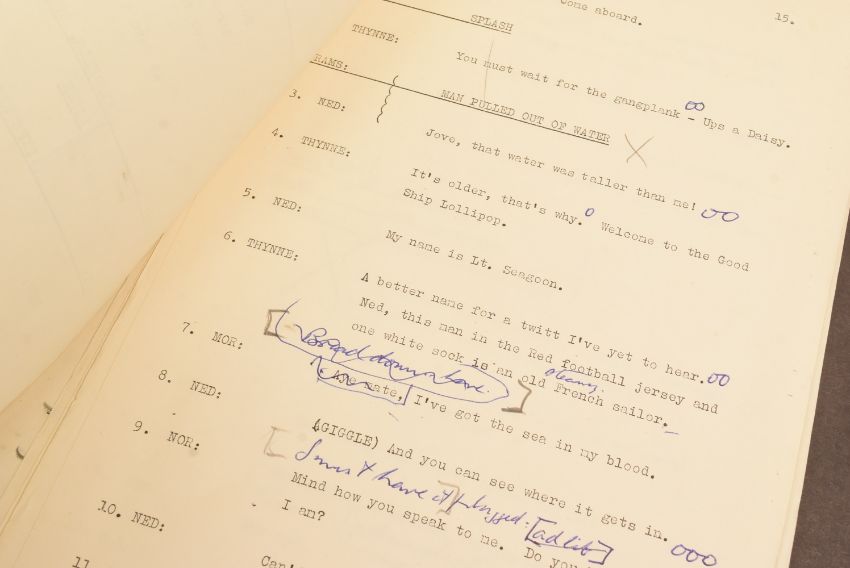 Come aboard.
15.
SPLASH
THYNNE: You must wait for the gangplank - Ups a Daisy.
RAMS: MAN PULLED OUT OF WATER
3. NED: Jove, that water was taller than me!
4. THYNNE: It's older, that's why. Welcome to the Good
Ship Lollipop.
5. NED: My name is Lt. Seagoon.
6. THYNNE: A better name for a twitt I've yet to hear.
Ned, this man in the Red football jersey and
one white sock is an old French sailor.
7. MOR: Aye mate, I've got the sea in my blood.
8. NED: (GIGGLE) And you can see where it gets in.
must have it plugged. [ad lib]
9. NOR: Mind how you speak to me. Do you
I an?
10. NED: Can'
11